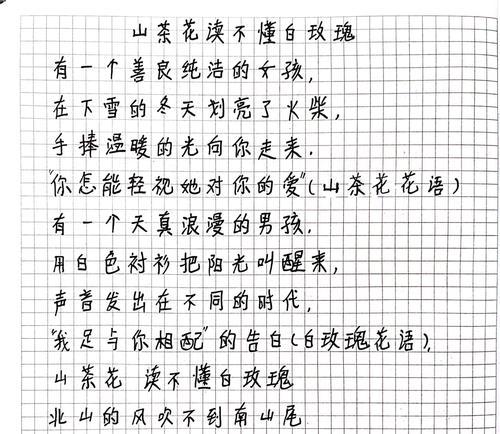 山茶花读不懂白玫瑰
有一个善良纯洁的女孩,
在下雪的冬天划亮了火柴,
手捧温暖的光向你走来.
"你怎能轻视她对你的爱"(山茶花花语)
有一个天真浪漫的男孩.
用白色衬衫把阳光叫醒来,
声音发出在不同的时代,
"我足与你相配"的告白(白玫瑰花语),
山茶花 读不懂白玫瑰
北山的风吹不到南山尾